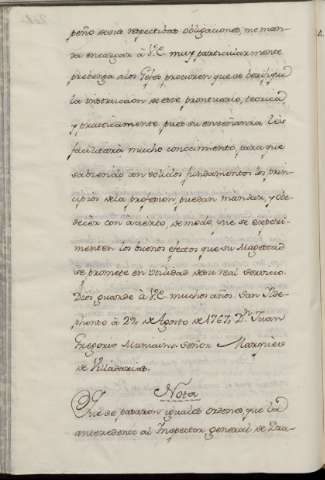 peño de sus respectibas obligaciones, me man-
da encargar á V.E. muy particularmente
prebenga á los Gefes procuren que se verifique
la instruccion de este prontuario, teorica
y practicamente pues su enseñanza les
facilitará mucho conocimiento, para que
sabiendo con solidos fundamentos los prin-
cipios de la profesion, puedan mandar, y obe-
decer con acierto, de modo que se experi-
menten los buenos efectos que Su Magestad
se promete en utilidad de su real servicio.
Dios guarde á V.E. muchos años. San Ilde-
phonso á 29 de Agosto de 1767. Dn. Juan
Gregorio Muniain. Señor Marques
de Villadarias.
Nota
Que se pasaron iguales ordenes que la
antecedente al Inspector general de Dra-